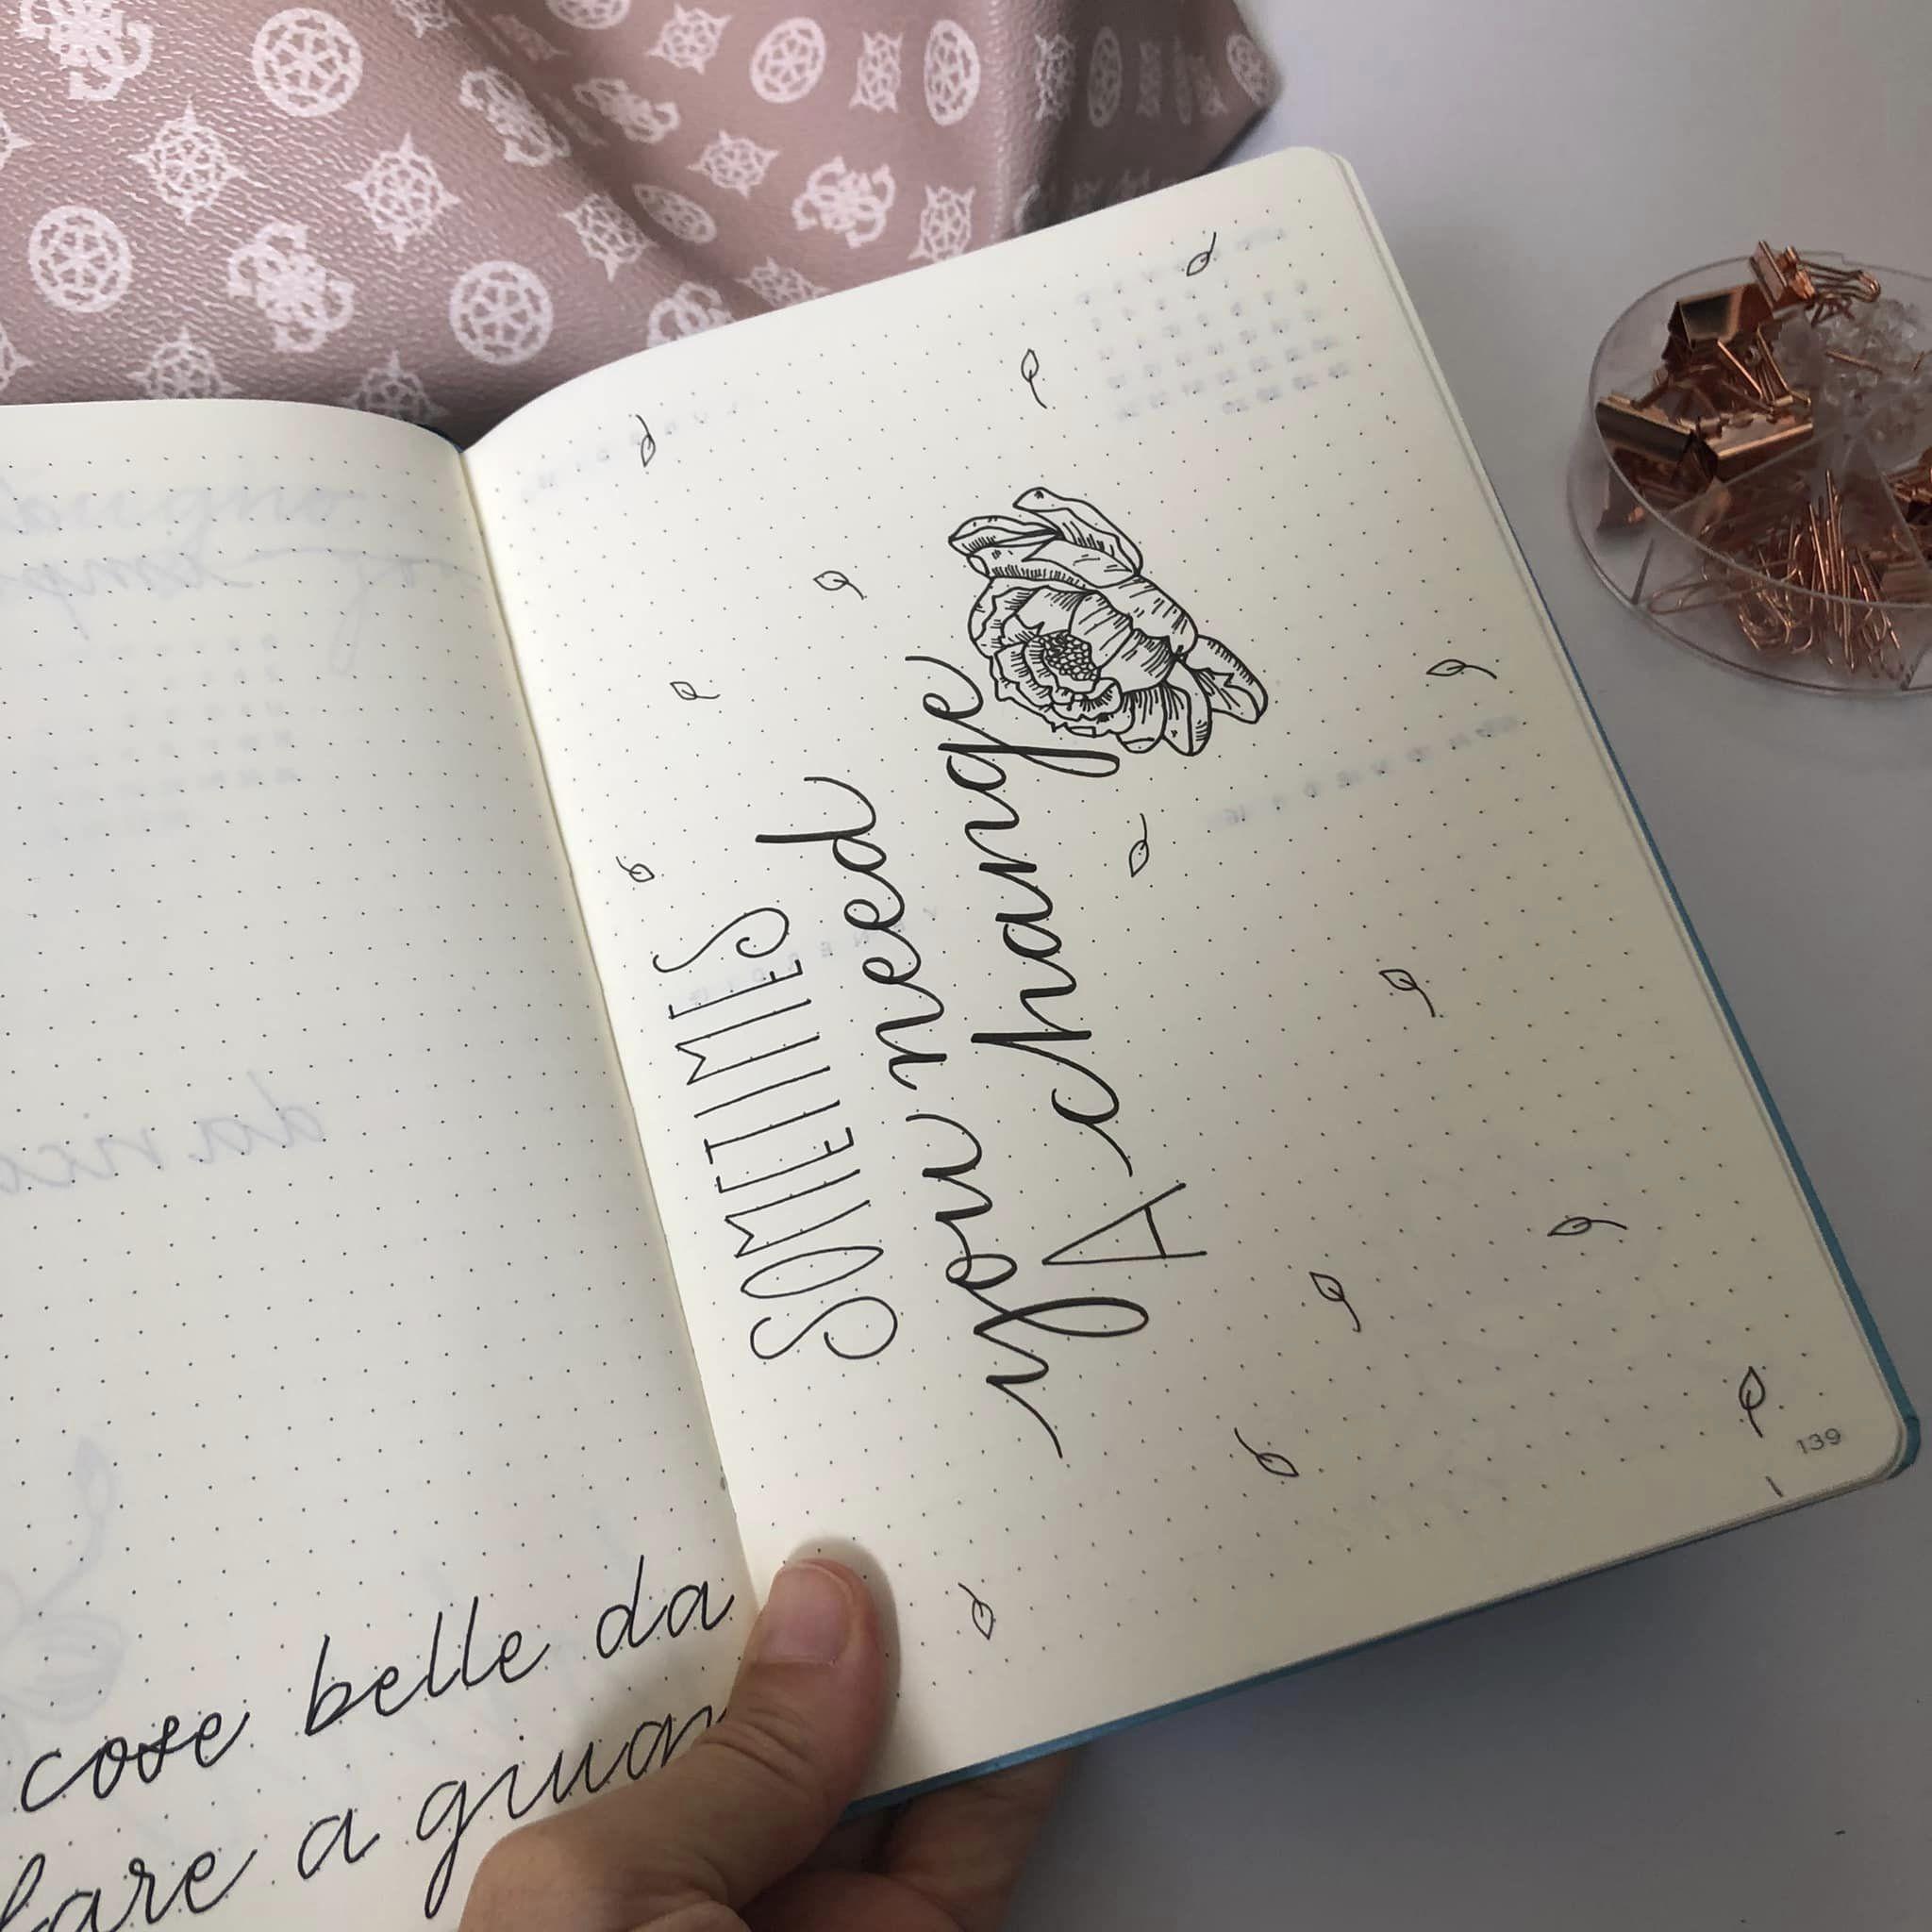 cose belle da
fare a
SOMETIMES
you need
A change
139